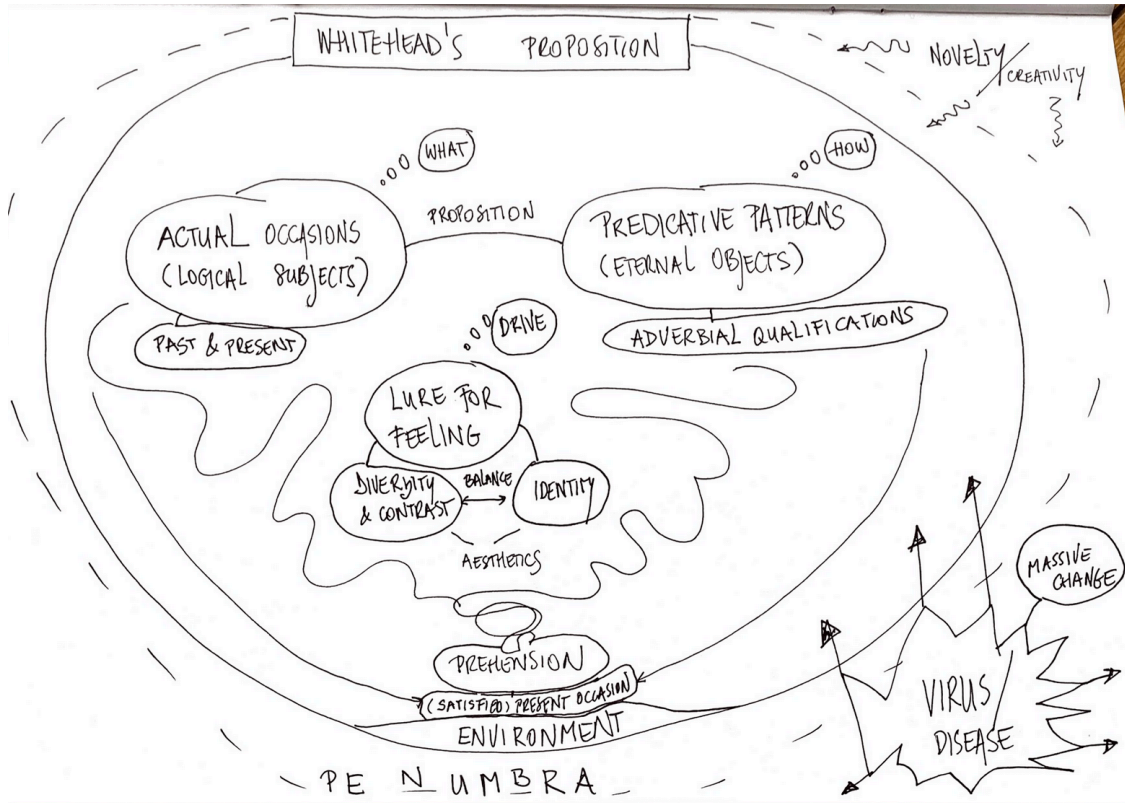 WHITEHEAD'S PROPOSITION
NOVELTY/
CREATIVITY
WHAT
HOW
ACTUAL OCCASIONS
(LOGICAL SUBJECTS)
PROPOSITION
PREDICATIVE PATTERNS
(ETERNAL OBJECTS)
PAST & PRESENT
ADVERBIAL QUALIFICATIONS
DRIVE
LURE FOR
FEELING
DIVERSITY
& CONTRAST
BALANCE
IDENTITY
AESTHETICS
MASSIVE
CHANGE
PREHENSION
(SATISFIED) PRESENT OCCASION
ENVIRONMENT
VIRUS
DISEASE
PENUMBRA